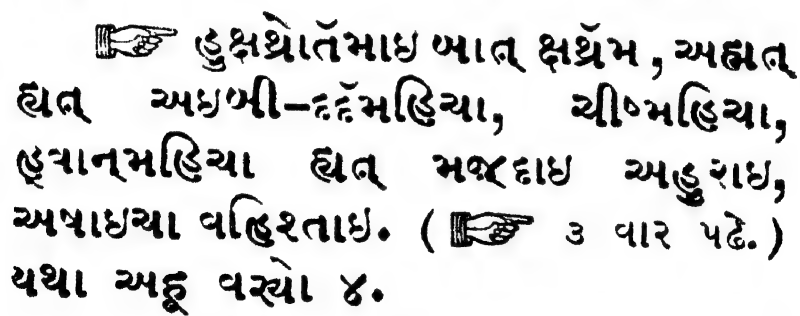 ☞ હુક્ષથ્રોતૅમાઇ બાત્ ક્ષથ્રૅમ, અહ્મત્
હ્યત્ અઇબી–દદૅમહિચા, ચીષ્મહિચા,
હ્વાન્મહિચા હ્યત્ મજદાઇ અહુરાઇ,
અષાઇચા વહિશ્તાઇ. (☞ ૩ વાર પઢે.)
યથા અહૂ વઇર્યો ૪.